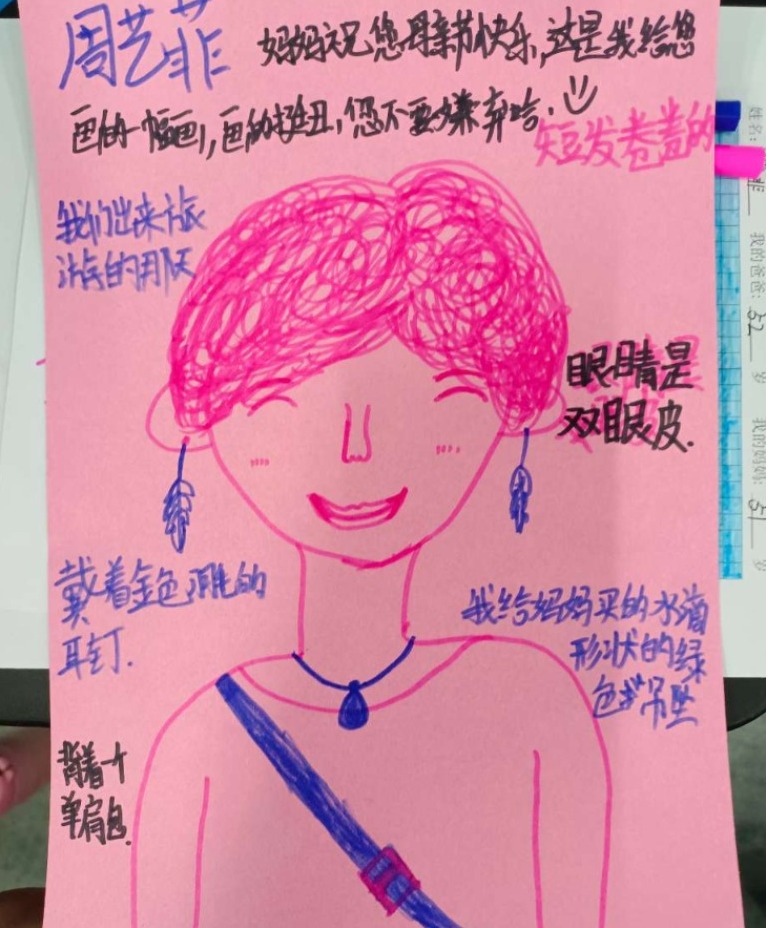 周艺菲
妈妈祝您母亲节快乐,这是我给您
画的一幅画,画的挺丑,您不要嫌弃哈.
短发卷盖的
我们出来旅
游的那天
眼睛是
双眼皮.
戴着金色的
耳钉.
我给妈妈买的水滴
形状的绿
色吊坠
背着个
单肩包.
姓名: 菲
我的爸爸: 52 岁
我的妈妈: 51 岁